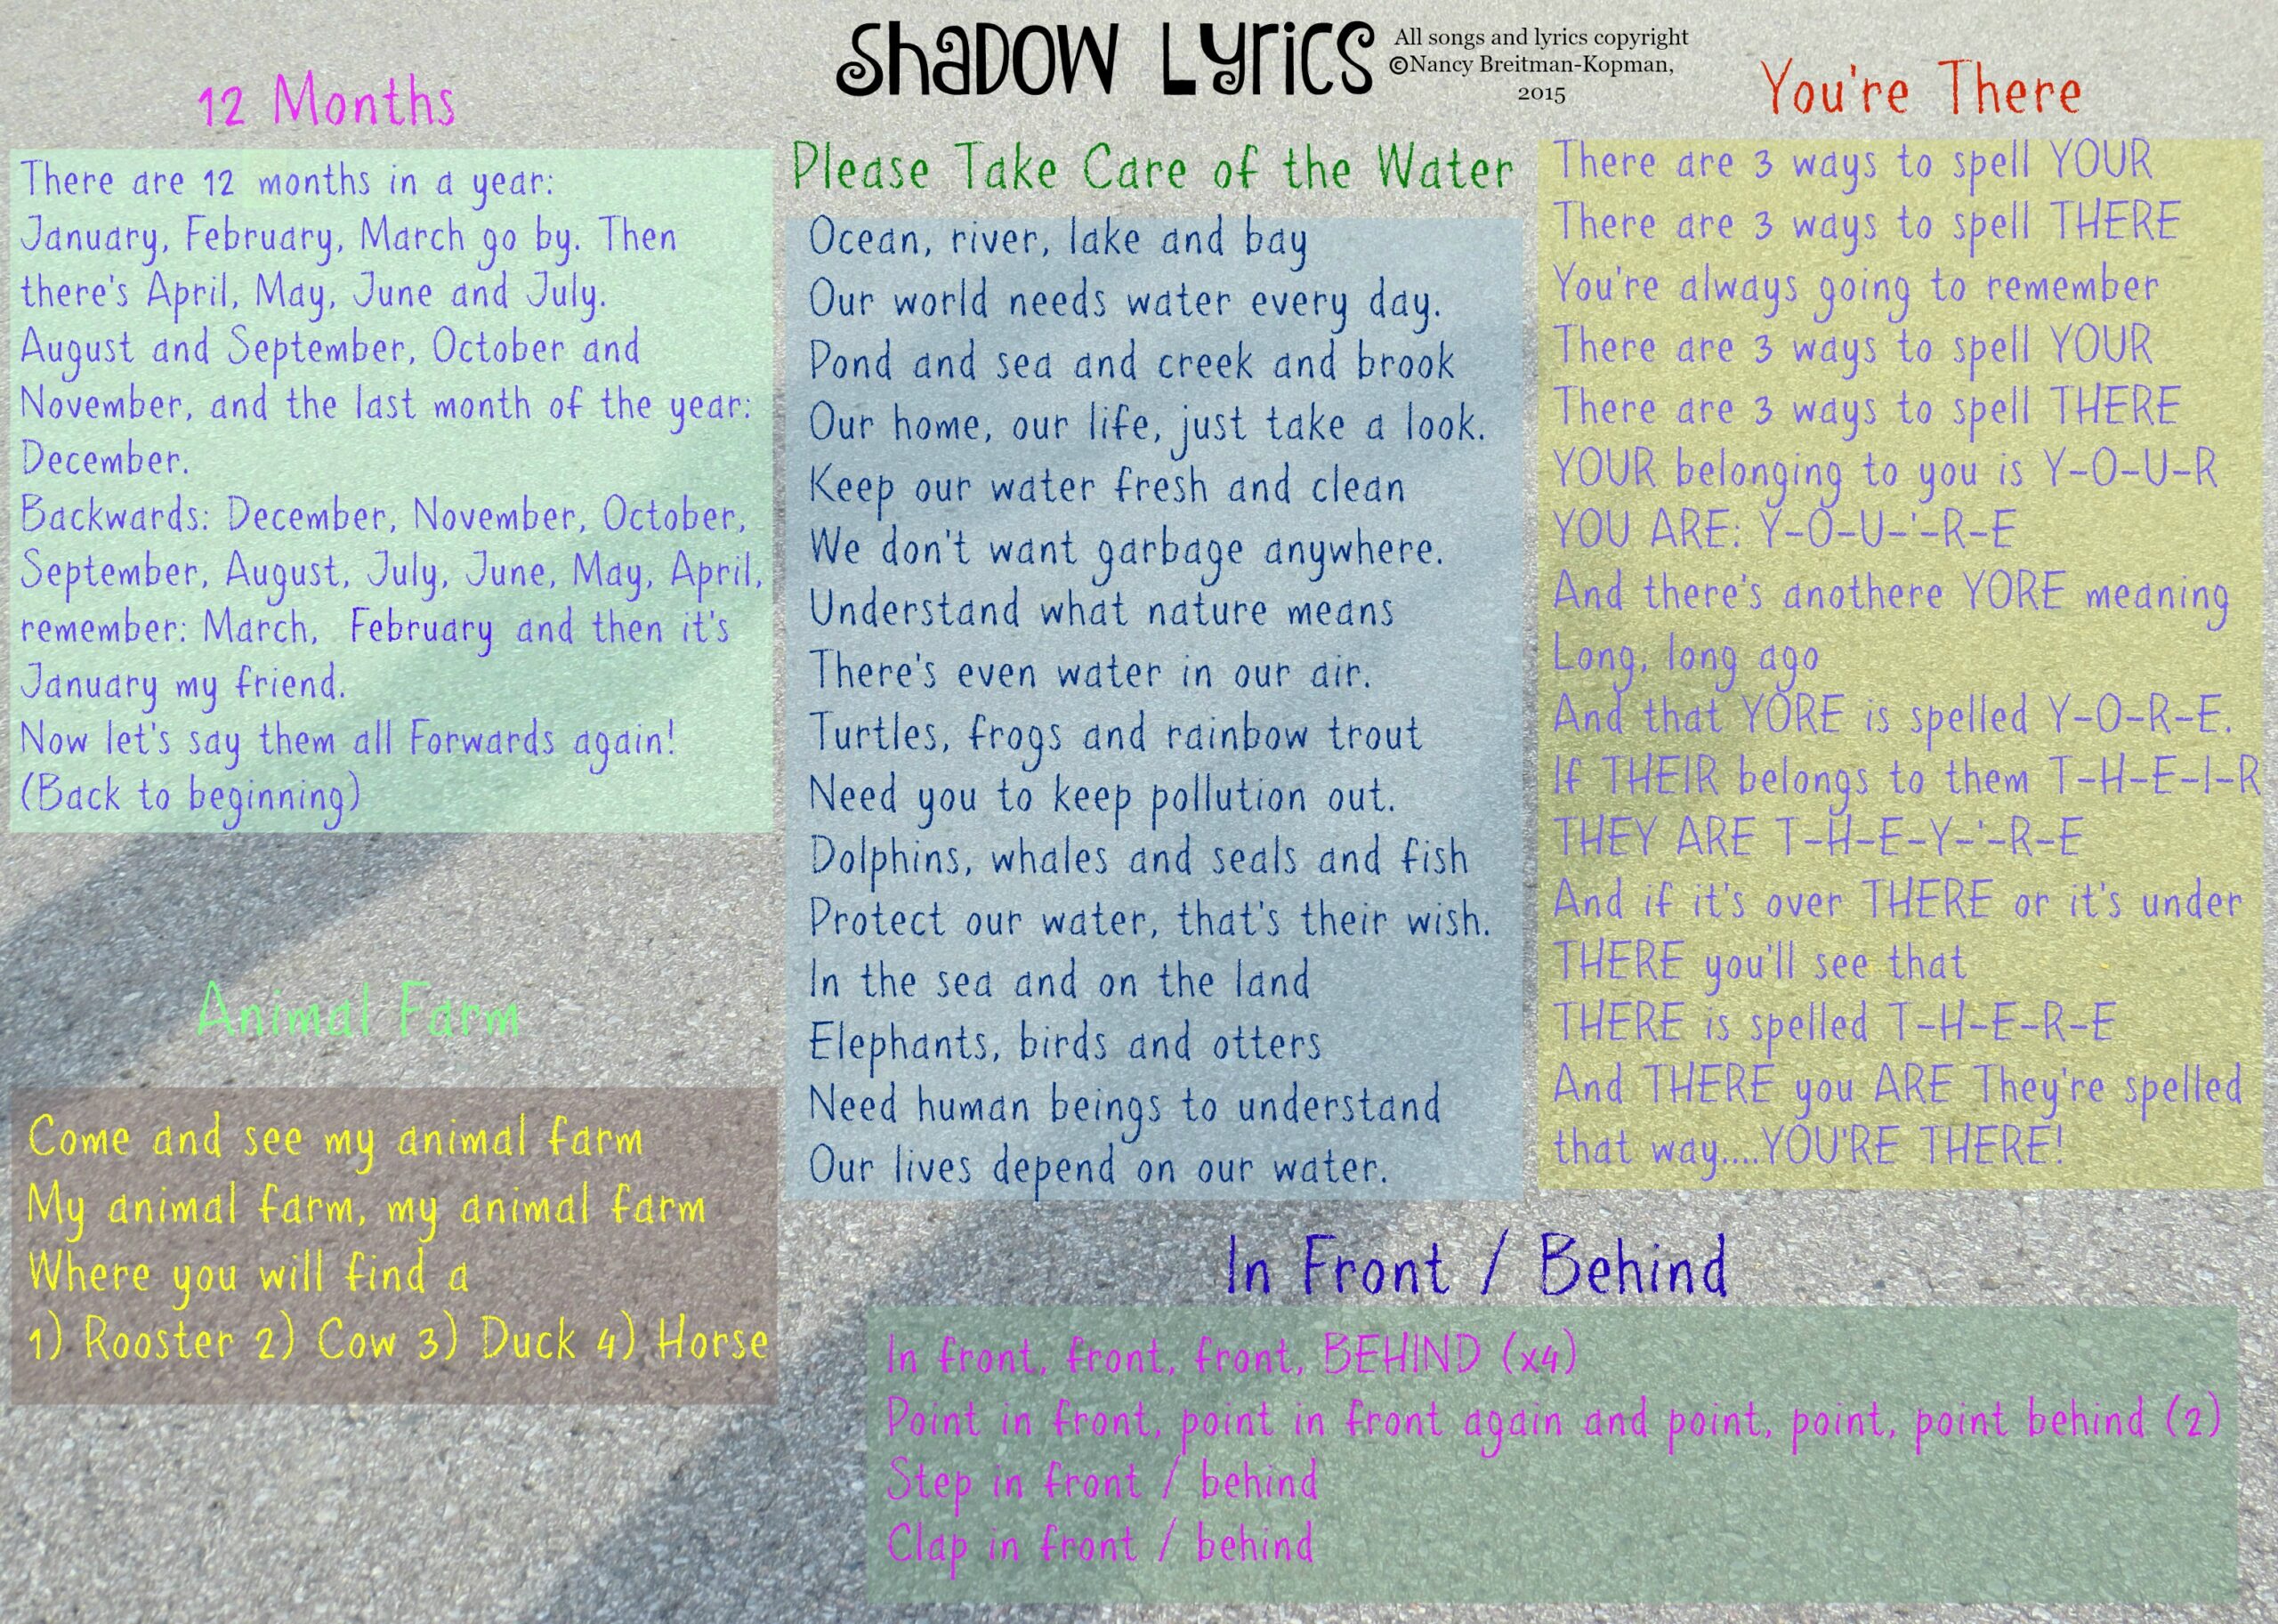 Shadow Lyrics
All songs and lyrics copyright
©Nancy Breitman-Kopman,
2015
12 Months
There are 12 months in a year:
January, February, March go by. Then
there's April, May, June and July.
August and September, October and
November, and the last month of the year:
December.
Backwards: December, November, October,
September, August, July, June, May, April,
remember: March, February and then it's
January my friend.
Now let's say them all Forwards again!
(Back to beginning)
Animal Farm
Come and see my animal farm
My animal farm, my animal farm
Where you will find a
1) Rooster 2) Cow 3) Duck 4) Horse
Please Take Care of the Water
Ocean, river, lake and bay
Our world needs water every day.
Pond and sea and creek and brook
Our home, our life, just take a look.
Keep our water fresh and clean
We don't want garbage anywhere.
Understand what nature means
There's even water in our air.
Turtles, frogs and rainbow trout
Need you to keep pollution out.
Dolphins, whales and seals and fish
Protect our water, that's their wish.
In the sea and on the land
Elephants, birds and otters
Need human beings to understand
Our lives depend on our water.
You're There
There are 3 ways to spell YOUR
There are 3 ways to spell THERE
You're always going to remember
There are 3 ways to spell YOUR
There are 3 ways to spell THERE
YOUR belonging to you is Y-O-U-R
YOU ARE: Y-O-U-'-R-E
And there's anothere YORE meaning
Long, long ago
And that YORE is spelled Y-O-R-E.
If THEIR belongs to them T-H-E-I-R
THEY ARE T-H-E-Y-'-R-E
And if it's over THERE or it's under
THERE you'll see that
THERE is spelled T-H-E-R-E
And THERE you ARE They're spelled
that way....YOU'RE THERE!
In Front / Behind
In front, front, front, BEHIND (x4)
Point in front, point in front again and point, point, point behind (2)
Step in front / behind
Clap in front / behind